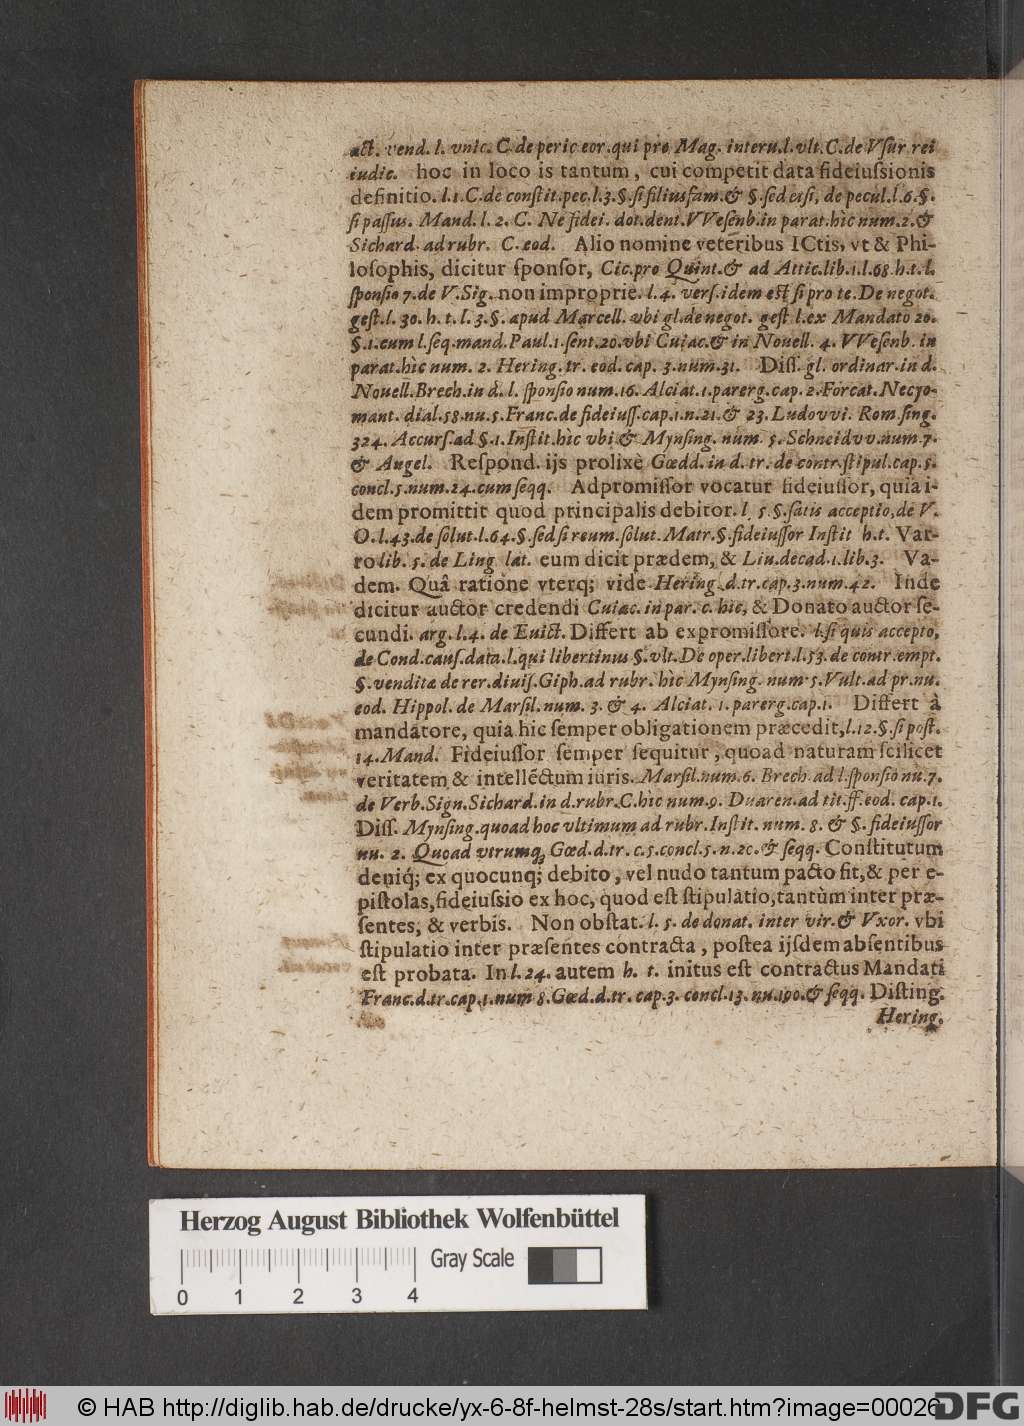 act. vend. l. vnic. C. de peric eor. qui pro Mag. interu. l. vlt. C. de Vſur rei
iudic. hoc in loco is tantum, cui competit data fideiuſsionis
definitio. l. 1. C. de conſtit. pec. l. 3. §. ſi filiusfam. & §. ſed etſi, de pecul. l. 6. §.
ſi paſſus. Mand. l. 2. C. Ne fidei. dot. dent. VVeſenb. in parat. hìc num. 2. &
Sichard. ad rubr. C. eod. Alio nomine veteribus ICtis, vt & Phi-
loſophis, dicitur ſponſor, Cic. pro Quint. & ad Attic. lib. 1. l. 68. h. t. l.
ſponſio 7. de V. Sig. non improprie. l. 4. verſ. idem eſt ſi pro te. De negot.
geſt. l. 30. h. t. l. 3. §. apud Marcell. vbi gl. de negot. geſt l. ex Mandato 20.
§. 1. cum l. ſeq. mand. Paul. 1. ſent. 20. vbi Cuiac. & in Nouell. 4. VVeſenb. in
parat. hìc num. 2. Hering. tr. eod. cap. 3. num. 31. Diſſ. gl. ordinar. in d.
Nouell. Brech. in d. l. ſponſio num. 16. Alciat. 1. parerg. cap. 2. Forcat. Necyo-
mant. dial. 58. nu. 5. Franc. de fideiuſſ. cap. 1. n. 21. & 23. Ludovvi. Rom. ſing.
324. Accurſ. ad §. 1. Inſtit. hìc vbi & Mynſing. num. 5. Schneidvv. num. 7.
& Angel. Reſpond. ijs prolixè Gœdd. in d. tr. de contr. ſtipul. cap. 5.
concl. 5. num. 24. cum ſeqq. Adpromiſſor vocatur fideiuſſor, quia i-
dem promittit quod principalis debitor. l. 5. §. ſatis acceptio, de V.
O. l. 43. de ſolut. l. 64. §. ſed ſi reum. ſolut. Matr. §. fideiuſſor Inſtit h. t. Var-
ro lib. 5. de Ling lat. eum dicit prædem, & Liu. decad. 1. lib. 3. Va-
dem. Quâ ratione vterq; vide Hering. d. tr. cap. 3. num. 42. Inde
dicitur auctor credendi Cuiac. in par. c. hìc, & Donato auctor ſe-
cundi. arg. l. 4. de Euict. Differt ab expromiſſore. l. ſi quis accepto,
de Cond. cauſ. data. l. qui libertinus §. vlt. De oper. libert. l. 53. de contr. empt.
§. venditæ de rer. diuiſ. Giph. ad rubr. hìc Mynſing. num. 5. Vult. ad pr. nu.
eod. Hippol. de Marſil. num. 3. & 4. Alciat. 1. parerg. cap. 1. Differt à
mandatore, quia hic ſemper obligationem præcedit, l. 12. §. ſi poſt.
14. Mand. Fideiuſſor ſemper ſequitur, quoad naturam ſcilicet
veritatem & intellectum iuris. Marſil. num. 6. Brech. ad l. ſponſio nu. 7.
de Verb. Sign. Sichard. in d. rubr. C. hìc num. 9. Duaren. ad tit. ff. eod. cap. 1.
Diſſ. Mynſing. quoad hoc vltimum ad rubr. Inſtit. num. 8. & §. fideiuſſor
nu. 2. Quoad vtrumq; Gœd. d. tr. c. 5. concl. 5. n. 20. & ſeqq. Conſtitutum
deniq́; ex quocunq; debito, vel nudo tantum pacto fit, & per e-
piſtolas, fideiuſsio ex hoc, quod eſt ſtipulatio, tantùm inter præ-
ſentes, & verbis. Non obſtat. l. 5. de donat. inter vir. & Vxor. vbi
ſtipulatio inter præſentes contracta, poſtea ijſdem abſentibus
eſt probata. In l. 24. autem h. t. initus eſt contractus Mandati
Franc. d. tr. cap. 1. num 8. Gœd. d. tr. cap. 3. concl. 13. nu. 190. & ſeqq. Diſting.
Hering.
Herzog August Bibliothek Wolfenbüttel
Gray Scale
0 1 2 3 4
© HAB http://diglib.hab.de/drucke/yx-6-8f-helmst-28s/start.htm?image=00026
DFG